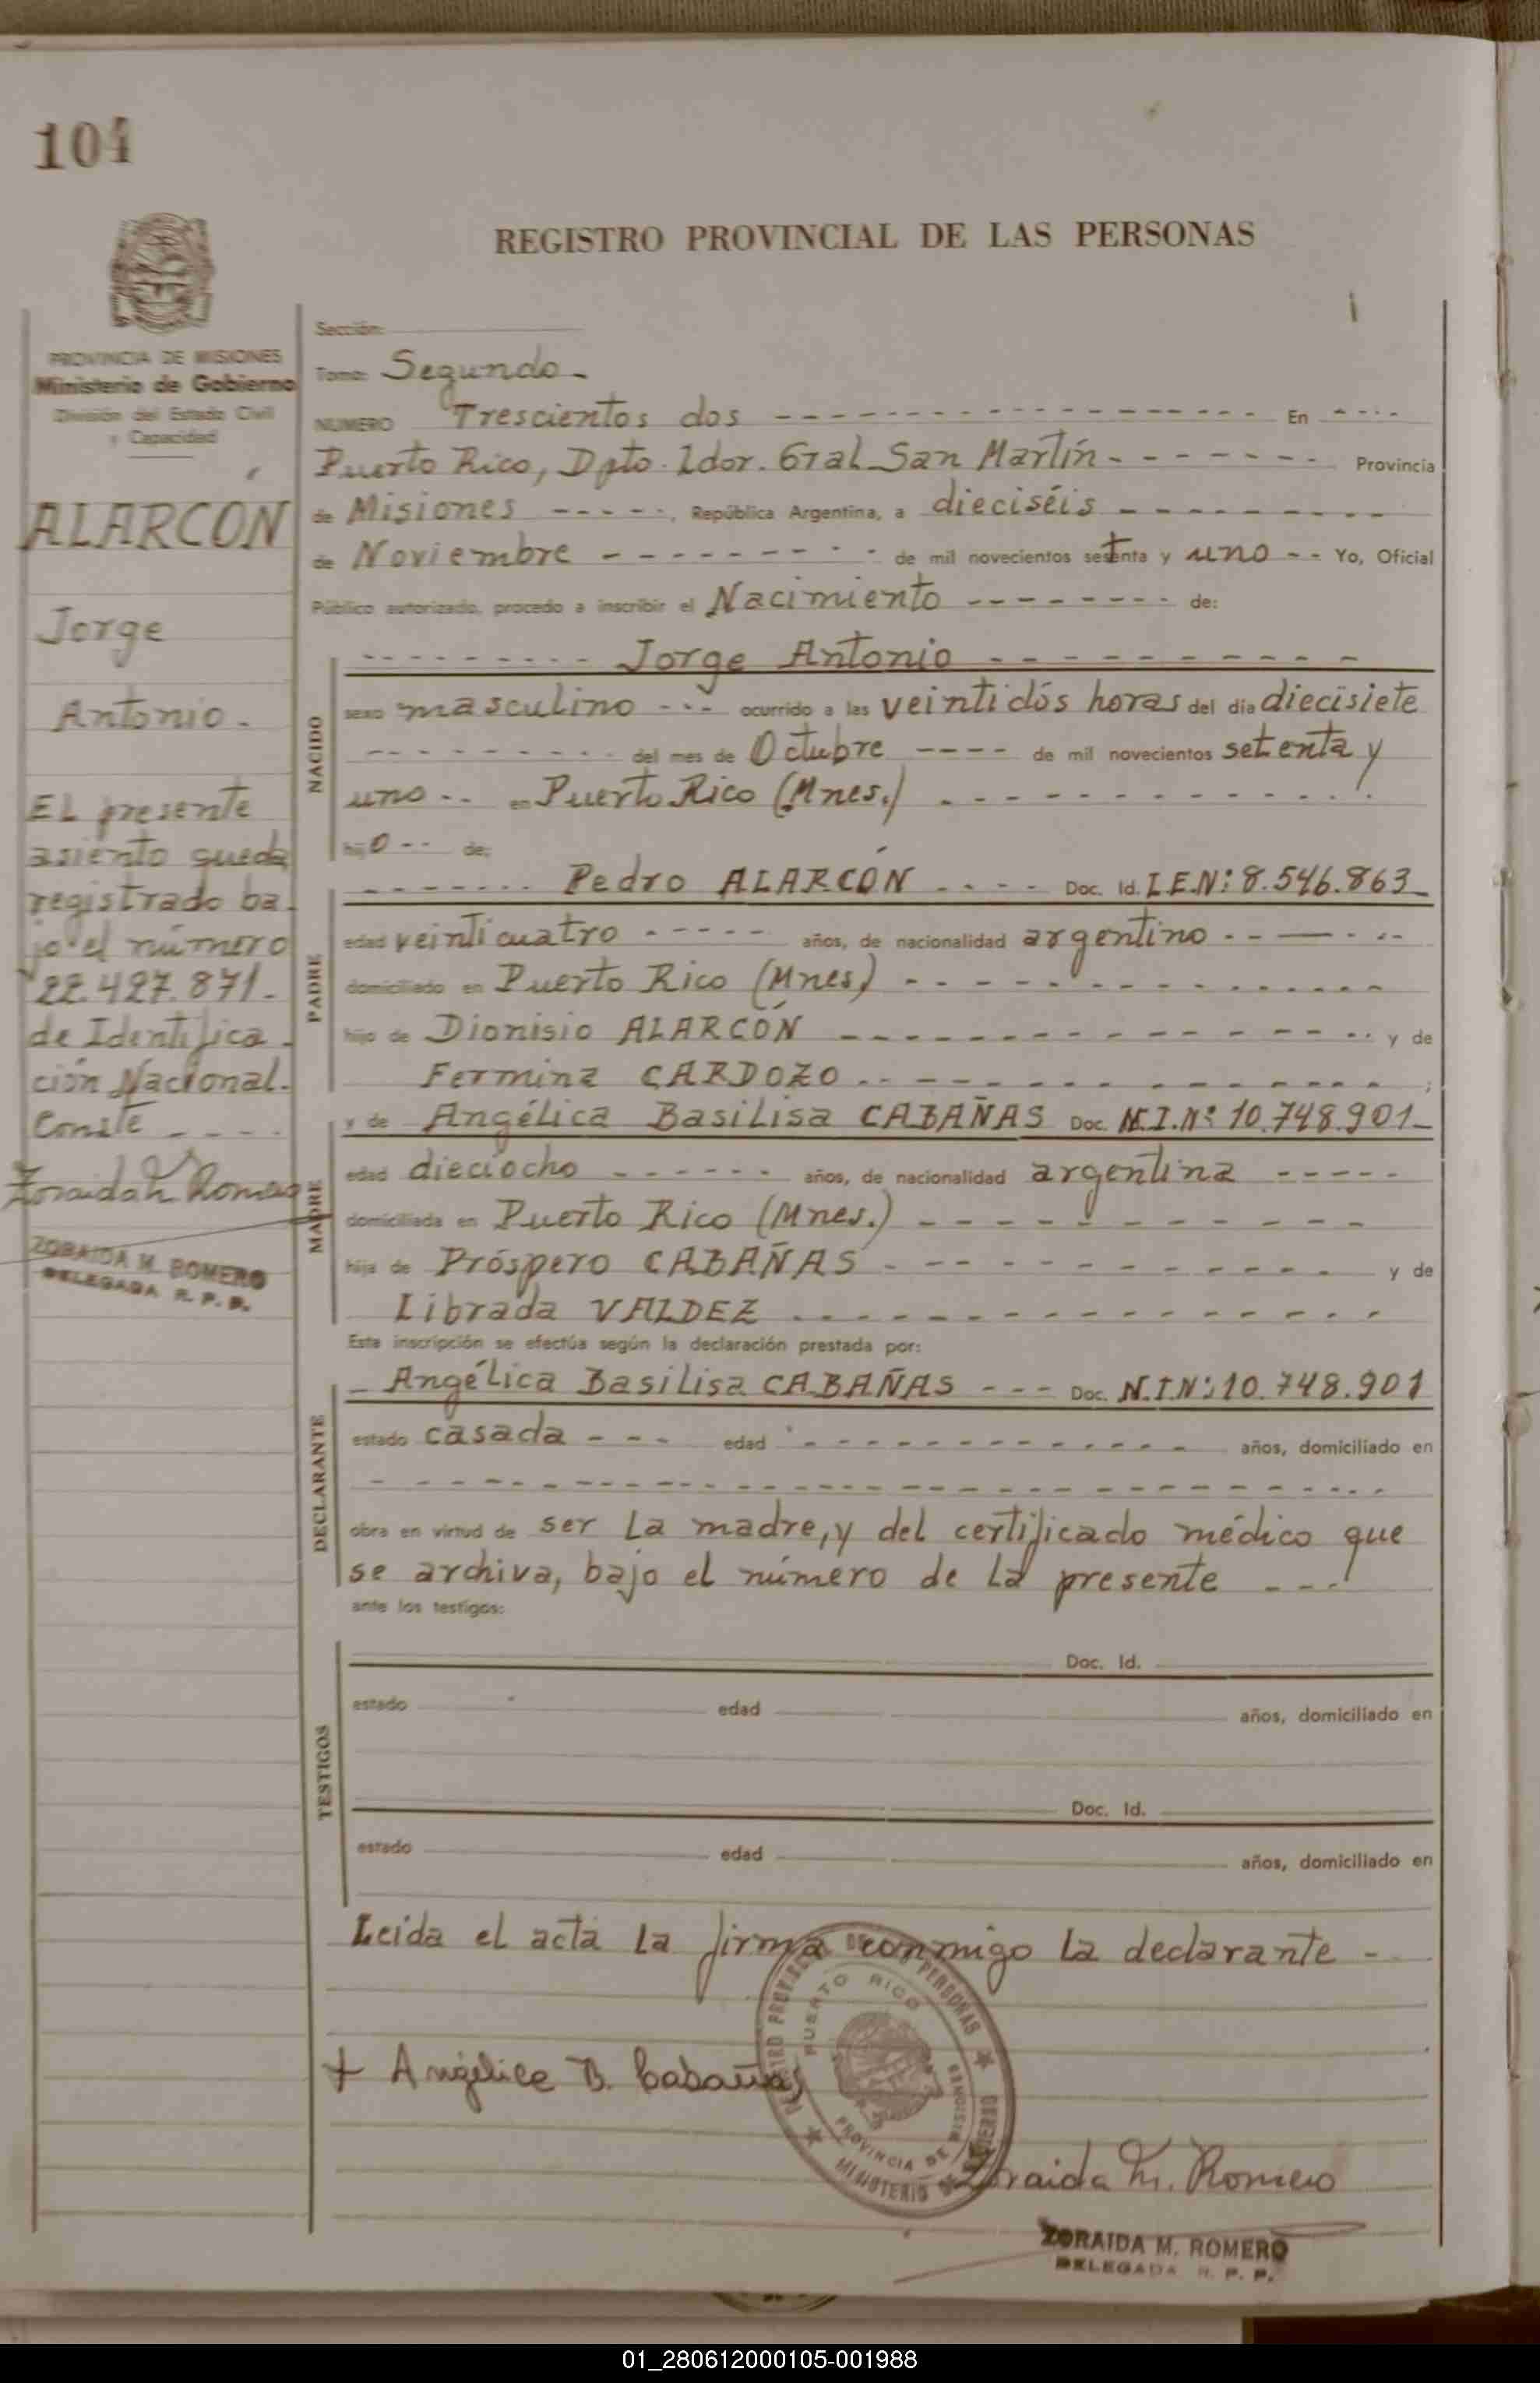 104
REGISTRO PROVINCIAL DE LAS PERSONAS
PROVINCIA DE MISIONES
Ministerio de Gobierno
División del Estado Civil
y Capacidad
ALARCON
Jorge
Antonio.
EL presente
asiento queda
registrado ba-
jo el número
22.427.871-
de Identifica-
ción Nacional.
Conste ----
Zoraida M. Romero
ZORAIDA M. ROMERO
DELEGADA R. P. P.
Sección:
Tomo: Segundo-
NUMERO Trescientos dos ---- En ----
Puerto Rico, Dpto. Ldor. Gral San Martín ---- Provincia
de Misiones -----, República Argentina, a dieciséis ----
de Noviembre ---- de mil novecientos setenta y uno -- Yo, Oficial
Público autorizado, procedo a inscribir el Nacimiento ---- de:
---- Jorge Antonio ----
NACIDO
sexo masculino --- ocurrido a las veintidós horas del día diecisiete
---- del mes de Octubre ---- de mil novecientos setenta y
uno -- en Puerto Rico (Mnes.) ----
hijo -- de:
---- Pedro ALARCÓN ---- Doc. Id. L.E.N: 8.546.863-
PADRE
edad veinticuatro ----- años, de nacionalidad argentino ----
domiciliado en Puerto Rico (Mnes) ----
hijo de Dionisio ALARCÓN ---- y de
Fermina CARDOZO ---- ;
y de Angélica Basilisa CABAÑAS Doc. N.I.Nº 10.748.901-
MADRE
edad dieciocho ------ años, de nacionalidad argentina -----
domiciliada en Puerto Rico (Mnes.) ----
hija de Próspero CABAÑAS ---- y de
Librada VALDEZ ----
Esta inscripción se efectúa según la declaración prestada por:
- Angélica Basilisa CABAÑAS --- Doc. N.I.N: 10.748.901
DECLARANTE
estado casada --- edad ---- años, domiciliado en
----
obra en virtud de ser La madre, y del certificado médico que
se archiva, bajo el número de La presente ---
ante los testigos:
TESTIGOS
Doc. Id.
estado edad años, domiciliado en
Doc. Id.
estado edad años, domiciliado en
Leida el acta La firma conmigo La declarante -
REGISTRO PROVINCIAL DE LAS PERSONAS
PUERTO RICO
PROVINCIA DE MISIONES
MINISTERIO DE GOBIERNO
+ Angélica B. Cabañas
Zoraida M. Romero
ZORAIDA M. ROMERO
DELEGADA R. P. P.
01_280612000105-001988